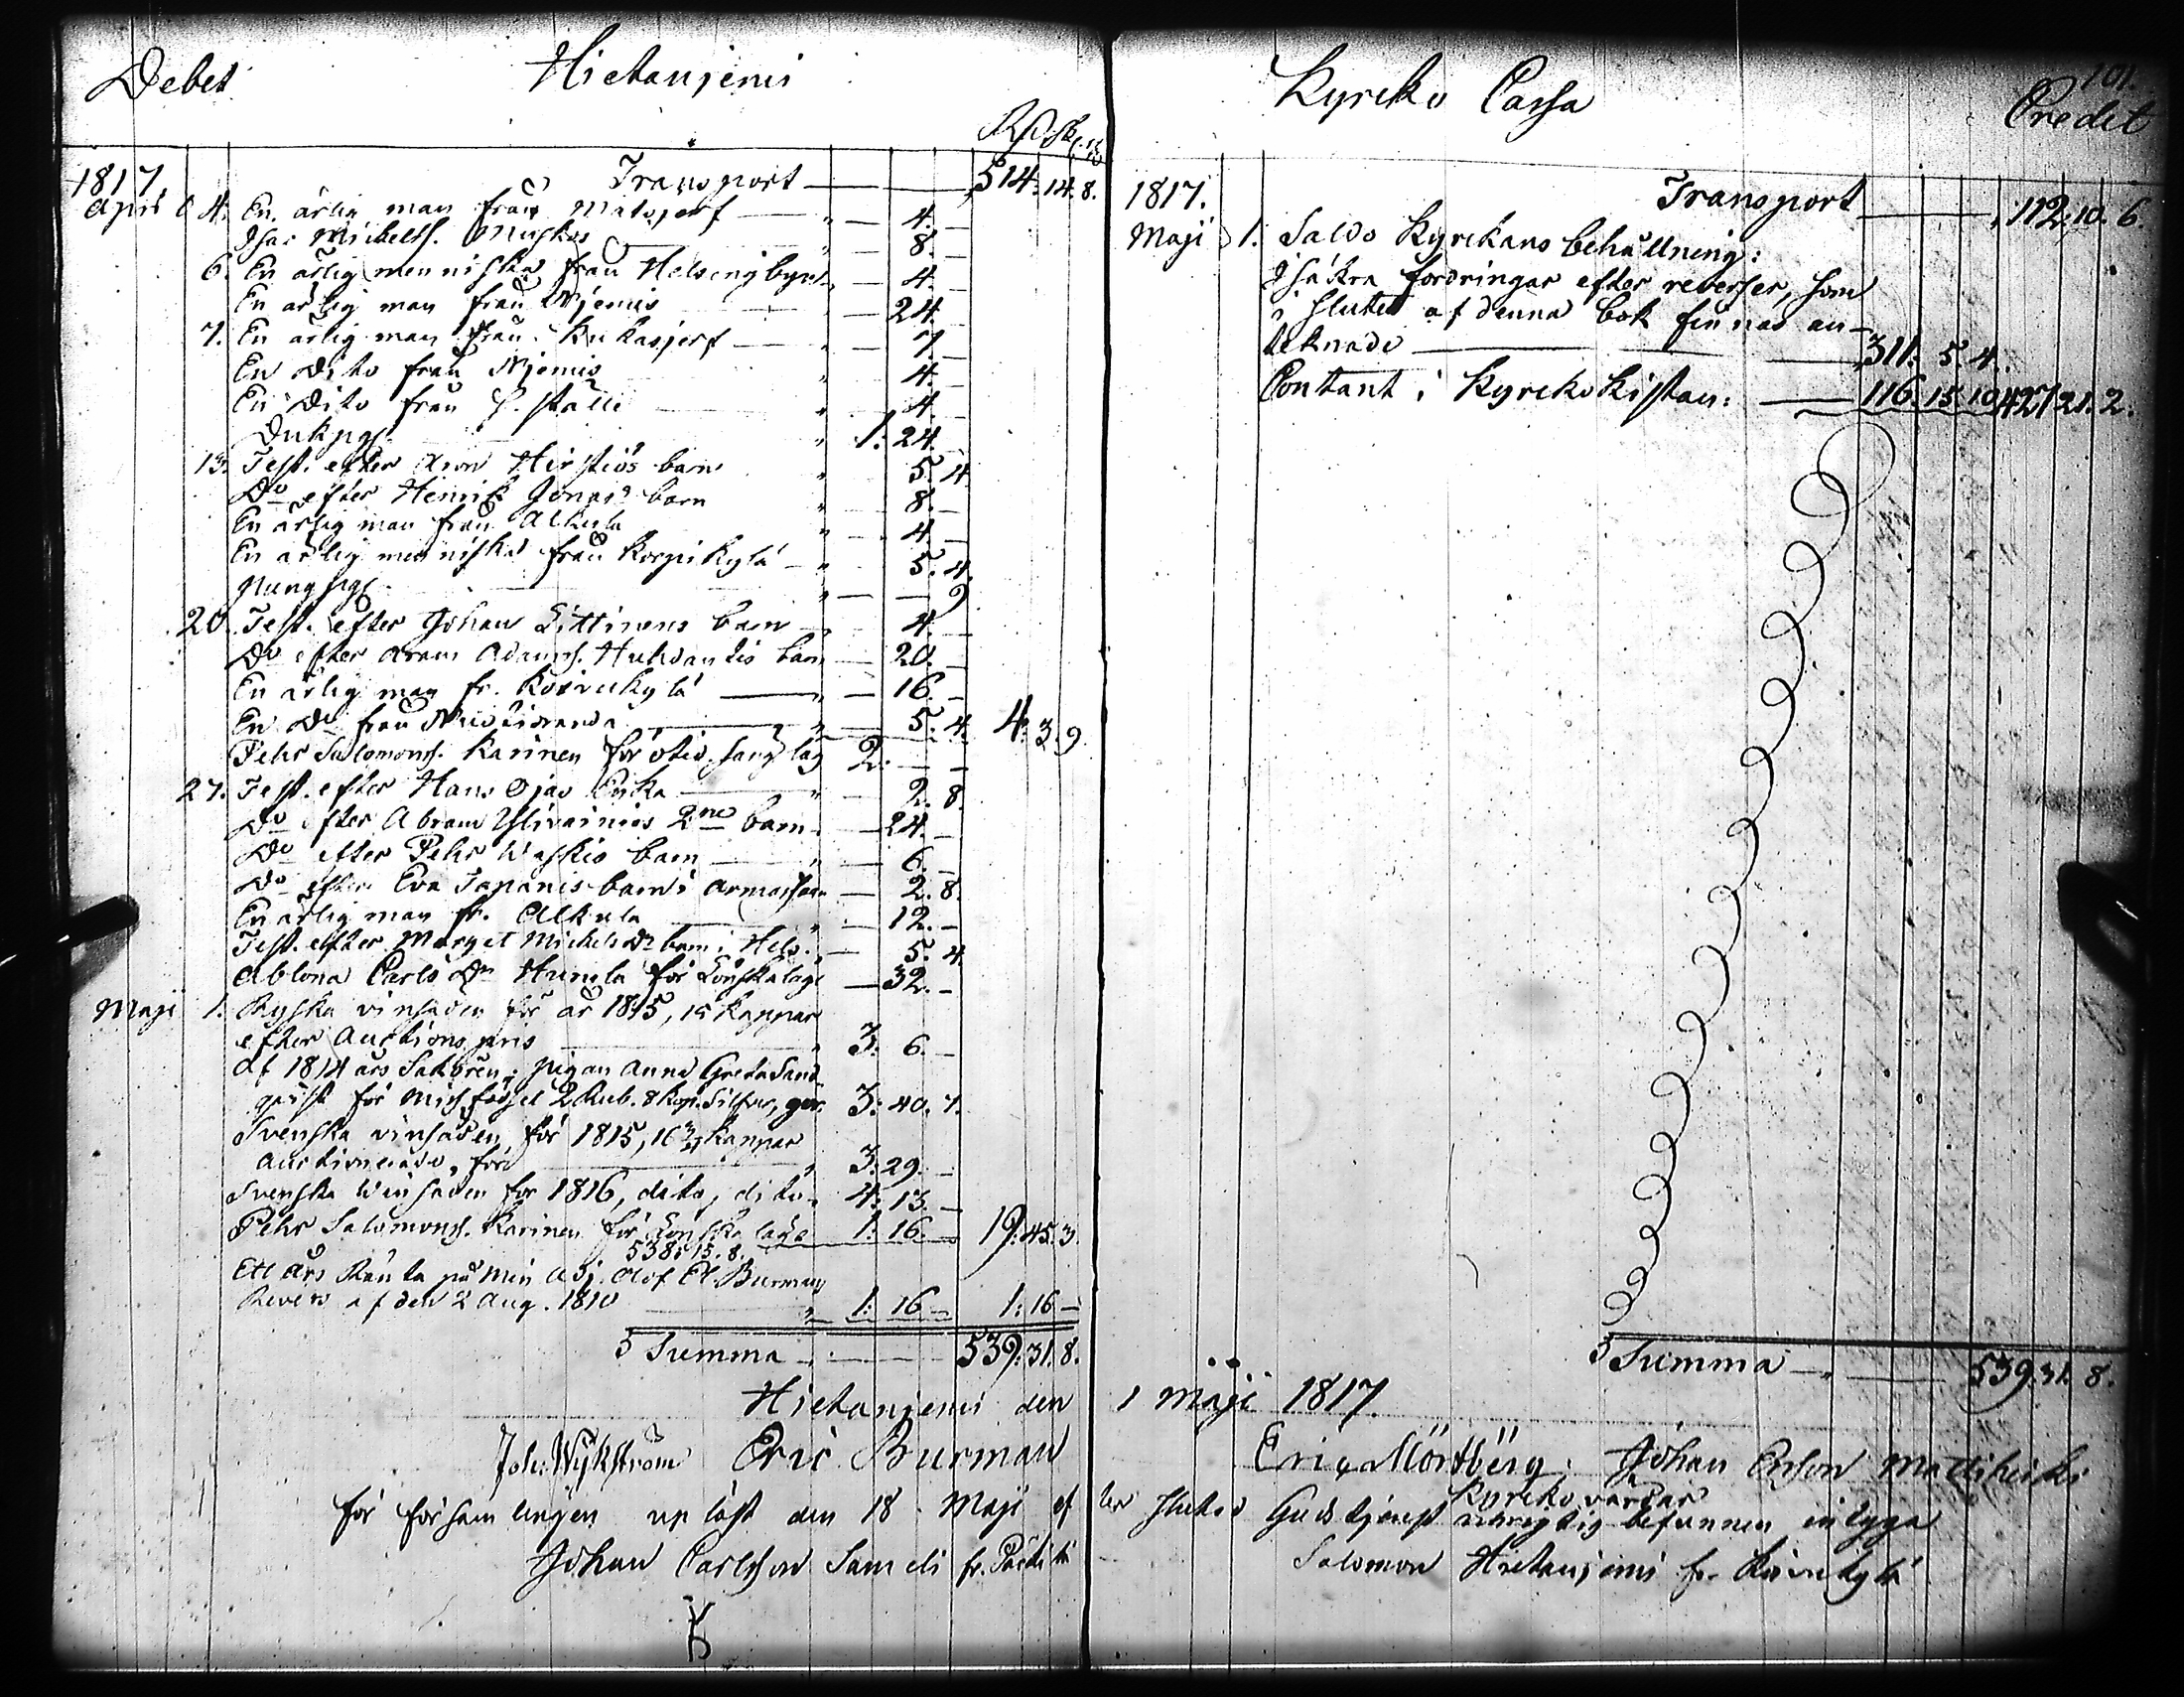 Debet Hietanjemi
Rd. sk. rst.
1817. Transport 514. 14. 8.
April 4. En ärlig man från Matojerf 4. –
Isac Mickelss. Muskos 8. –
6. En ärlig menniska från Helsingbyn 4. –
En ärlig man från Njemis 24. –
7. En ärlig man från Kukasjerf 7. –
En Dito från Njemis 4. –
En Dito från 4. –
1: 24. –
13. Test. efter Aron barn 5. 4.
Do efter Henrik Jonæs barn 8. –
En ärlig man från Alkula 4. –
En ärlig menniska från Korpikylä 5. 4.
Pung pgr 9
20. Test. efter Johan Littinens barn 4. –
Do efter Abram Adamss. Huhdantis barn 20. –
En ärlig man fr. Koivukylä 16. –
En Do från 5. 4. 4: 3. 9.
Pehr Salomonss. Karinen för otid. säng lag 2. – –
27. Test. efter Hans Ojas Enka 2. 8.
Do efter Abram Ylivainios 2ne barn 24. –
Do efter Pehr Waskis barn 6. –
Do efter Eva Tapanis barn i Armassaari 2. 8.
En ärlig man fr. Alkula 12. –
Test. efter Marget Michels Dr barn i Hels. 5. 4.
Ablona Carls Dr Humla för Lönskaläge 32. –
Maji 1. Ryska vinsäden för år 1815, 15 Kappar
efter Auctions pris 3: 6. –
Af 1814 års Sakören: pigan Anna Greta Sand
qvist för Missfirsel 2 Rub. 8 Kop. Silfver, gör 3: 40. 7.
Svenska vinsäden för 1815, 16 3/4 Kappar
auctionerade, före 3: 29. –
Svenska Winsäden för 1816, dito, dito 4: 13. –
Pehr Salomonss. Karinen för Lönska läge 1: 16. – 19: 45. 3.
538: 15. 8.
Ett års Ränta på Min Adj. Olof El. Burmans
Revers af den 2 Aug. 1810 1: 16 – 1: 16 –
Summa 539: 31. 8.
Hietanjemi den
Joh: Wykström Eric Burman
för församlingen up läst den 18 Maji ef
Johan Carlsson Sameli fr.
101.
Kyrcko Cassa Credit
1817. Transport 112. 10. 6.
Maji 1. Saldo Kyrckans behållning:
Isäkra fordringar efter reverser, som
i slutet af denna bok finnas an-
tecknade 311: 5. 4.
Contant i Kyrcko Kistan: 116. 15. 10 427. 21. 2.
Summa 539. 31. 8.
1 Maji 1817.
Eric Mörtberg. Johan Ersson Mattiheiki
Kyrcko värdar
ter slutad Gudstjenst riktig befunnen intyga
Salomon Hietanjemi fr. Koivukylä